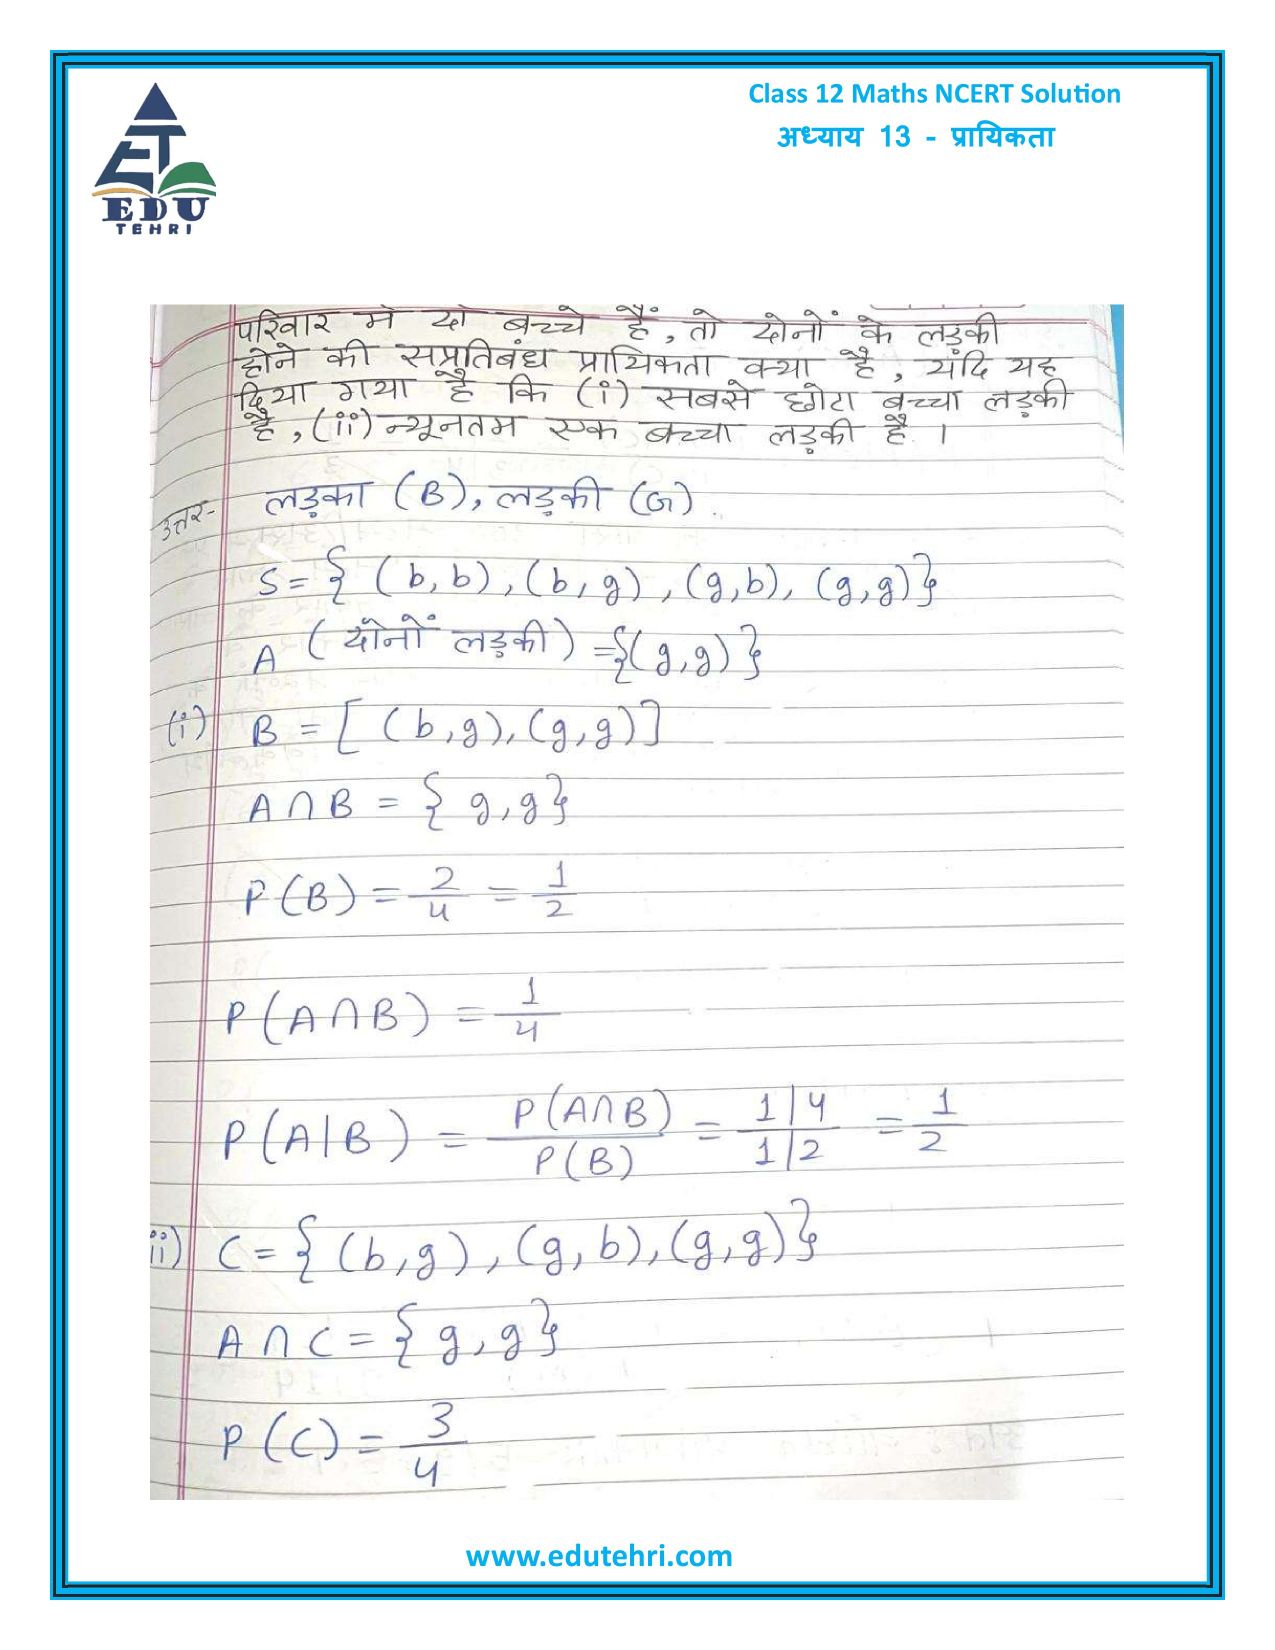 Class 12 Maths NCERT Solution
अध्याय 13 - प्रायिकता
EDU
TEHRI
परिवार मे दो बच्चे हैं, तो दोनों के लड़की
होने की सप्रतिबंध प्रायिकता क्या है, यदि यह
दिया गया है कि (i) सबसे छोटा बच्चा लड़की
है, (ii) न्यूनतम एक बच्चा लड़की है ।
उत्तर- लड़का (B), लड़की (G).
S = { (b, b), (b, g), (g, b), (g, g)}
A (दोनों लड़की) = {(g, g)}
(i) B = [ (b, g), (g, g)]
A ∩ B = { g, g}
P(B) = 2/4 = 1/2
P(A∩B) = 1/4
P(A|B) = P(A∩B)/P(B) = 1|4/1|2 = 1/2
ii) C = { (b, g), (g, b), (g, g)}
A ∩ C = { g, g}
P(C) = 3/4
www.edutehri.com